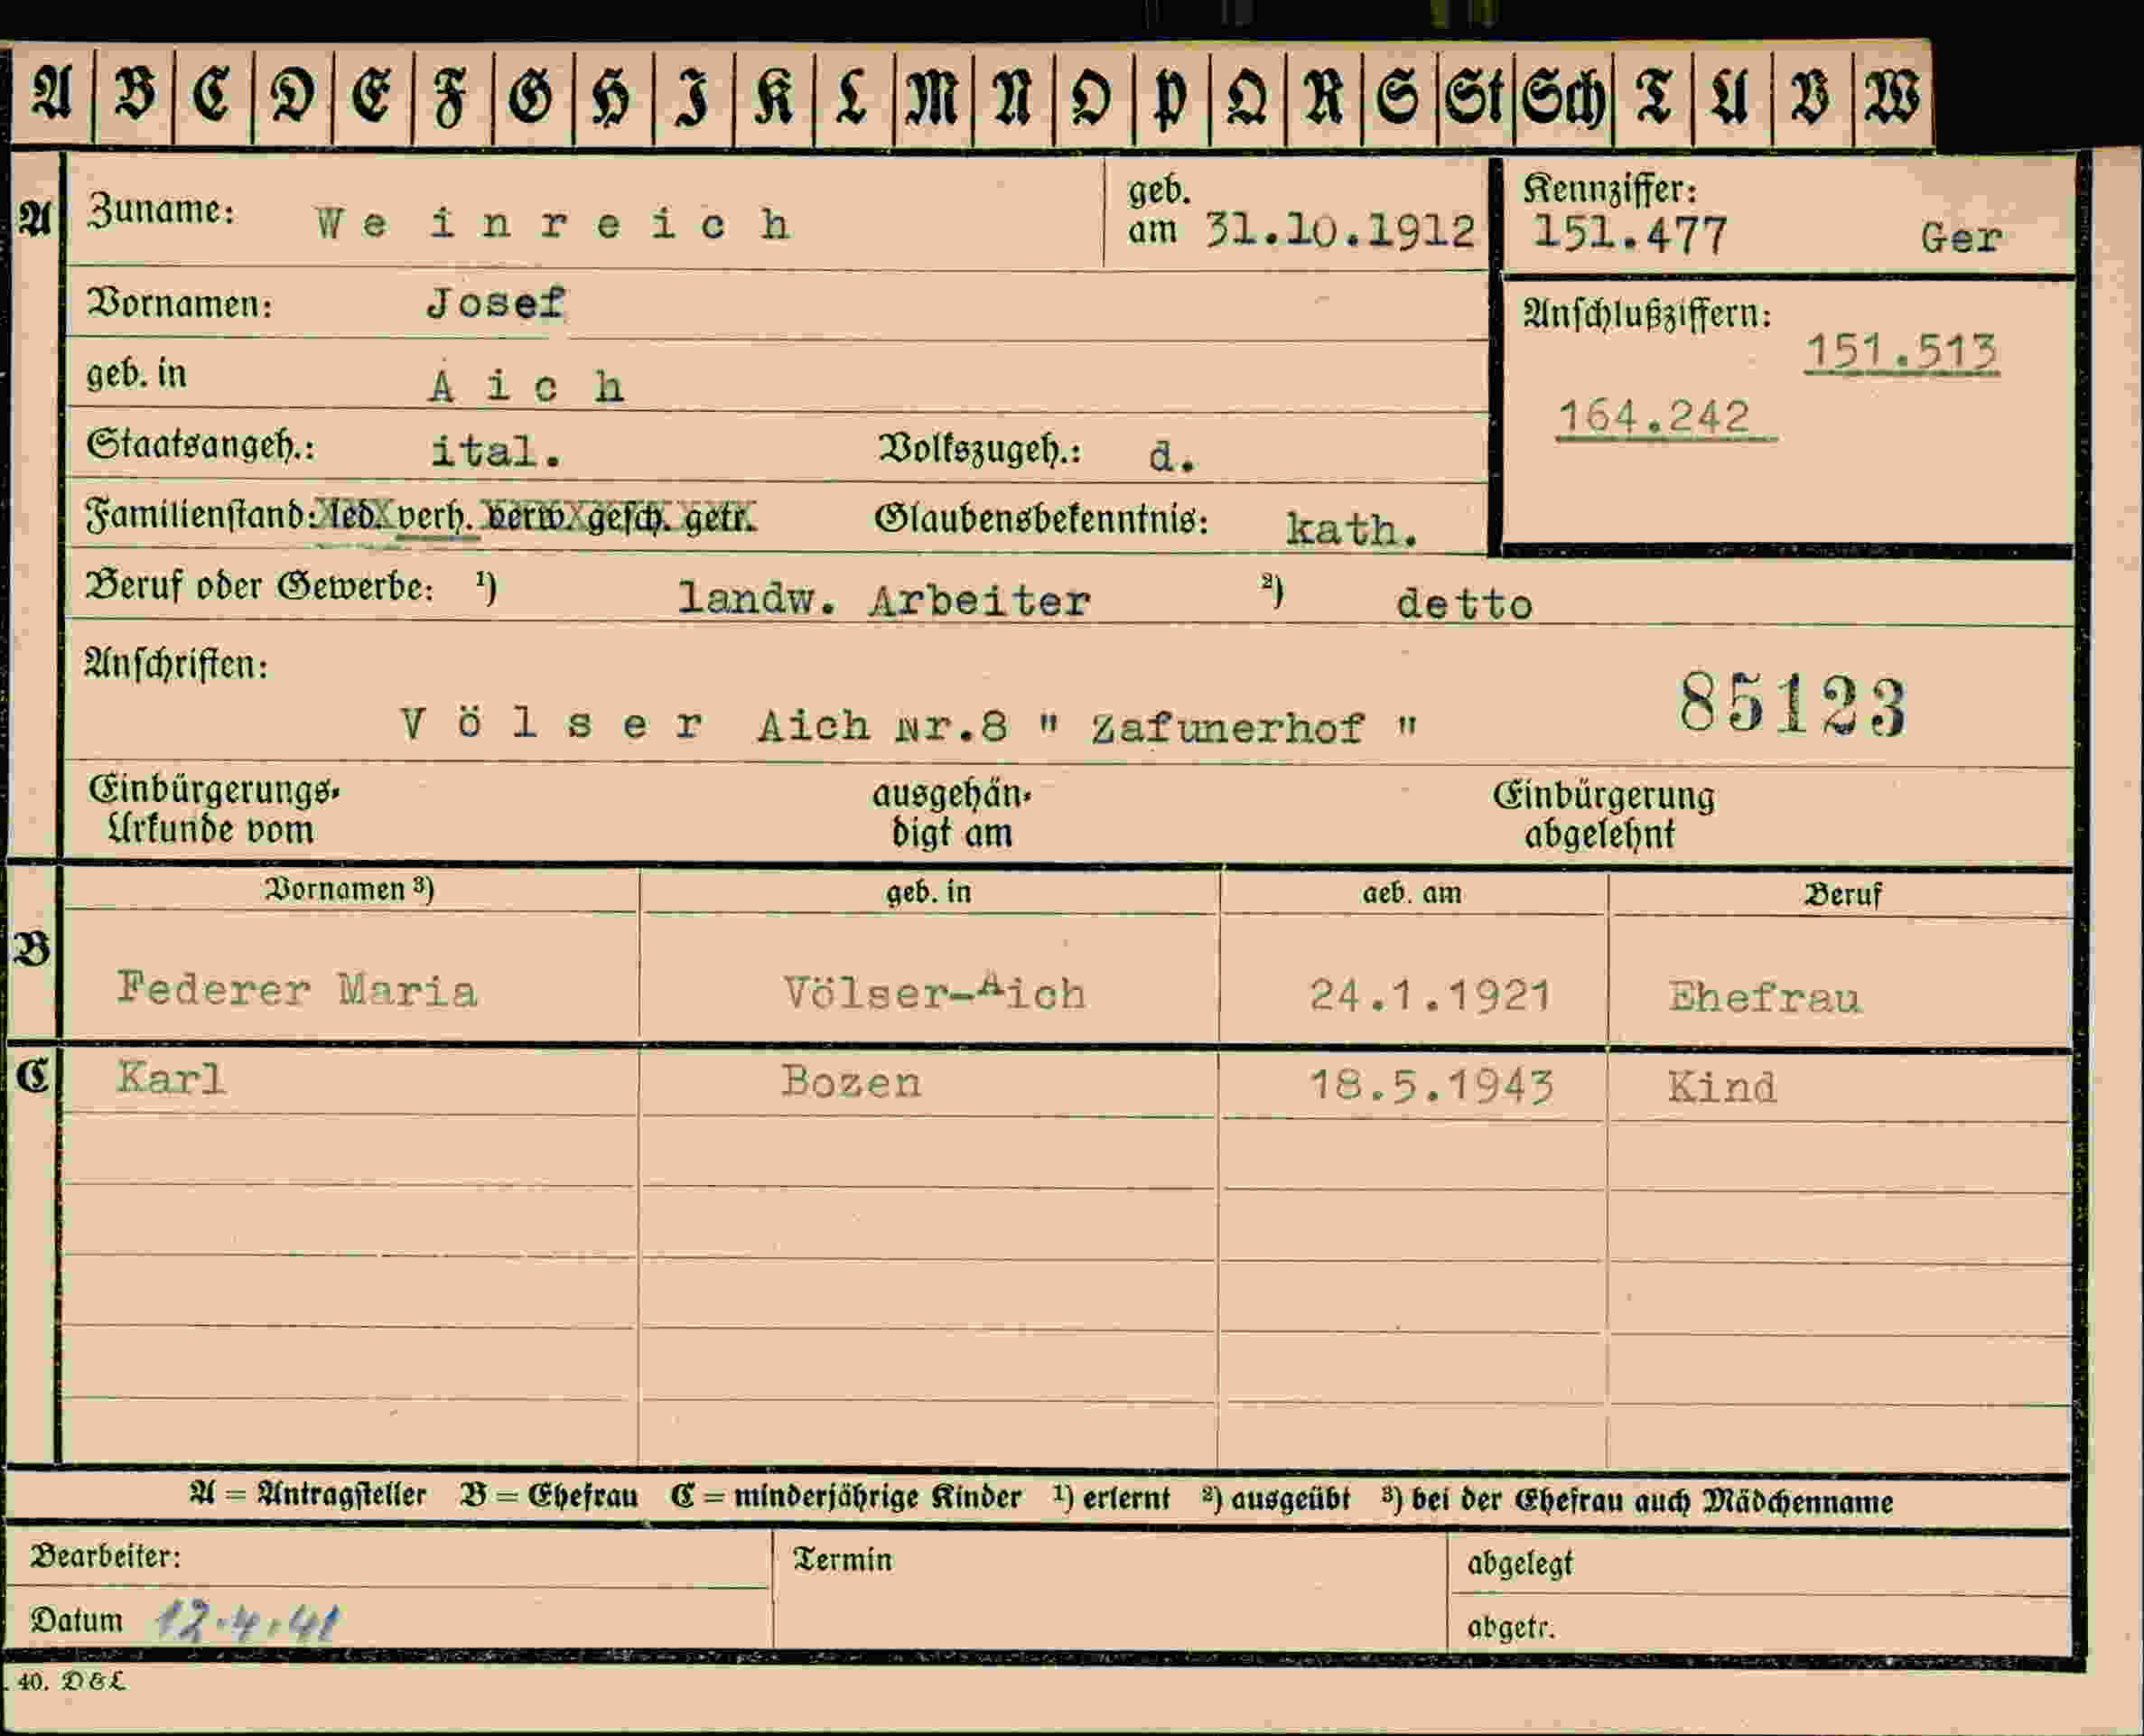 A B C D E F G H I K L M N O P Q R S St Sch T U V W
A Zuname: Weinreich geb. am 31.10.1912 Kennziffer: 151.477 Ger
Vornamen: Josef Anschlußziffern: 151.513
geb. in Aich 164.242
Staatsangeh.: ital. Volkszugeh.: d.
Familienstand: led. verh. verw. gesch. getr. Glaubensbekenntnis: kath.
Beruf oder Gewerbe: ¹) landw. Arbeiter ²) detto
Anschriften:
Völser Aich Nr.8 " Zafunerhof " 85123
Einbürgerungs- ausgehän- Einbürgerung
Urkunde vom digt am abgelehnt
Vornamen ³) geb. in geb. am Beruf
B Federer Maria Völser-Aich 24.1.1921 Ehefrau
C Karl Bozen 18.5.1943 Kind
A = Antragsteller B = Ehefrau C = minderjährige Kinder ¹) erlernt ²) ausgeübt ³) bei der Ehefrau auch Mädchenname
Bearbeiter: Termin abgelegt
Datum 12.4.41 abgetr.
40. D&L